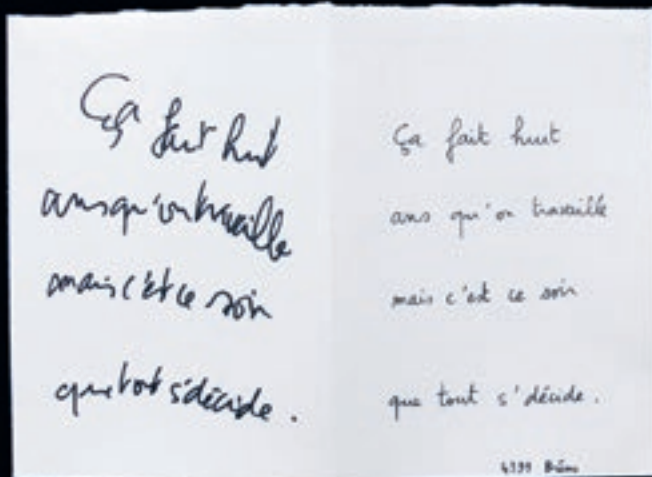 Ça fait huit
ans qu'on travaille
mais c'est ce soir
que tout s'décide.
Ça fait huit
ans qu'on travaille
mais c'est ce soir
que tout s'décide.